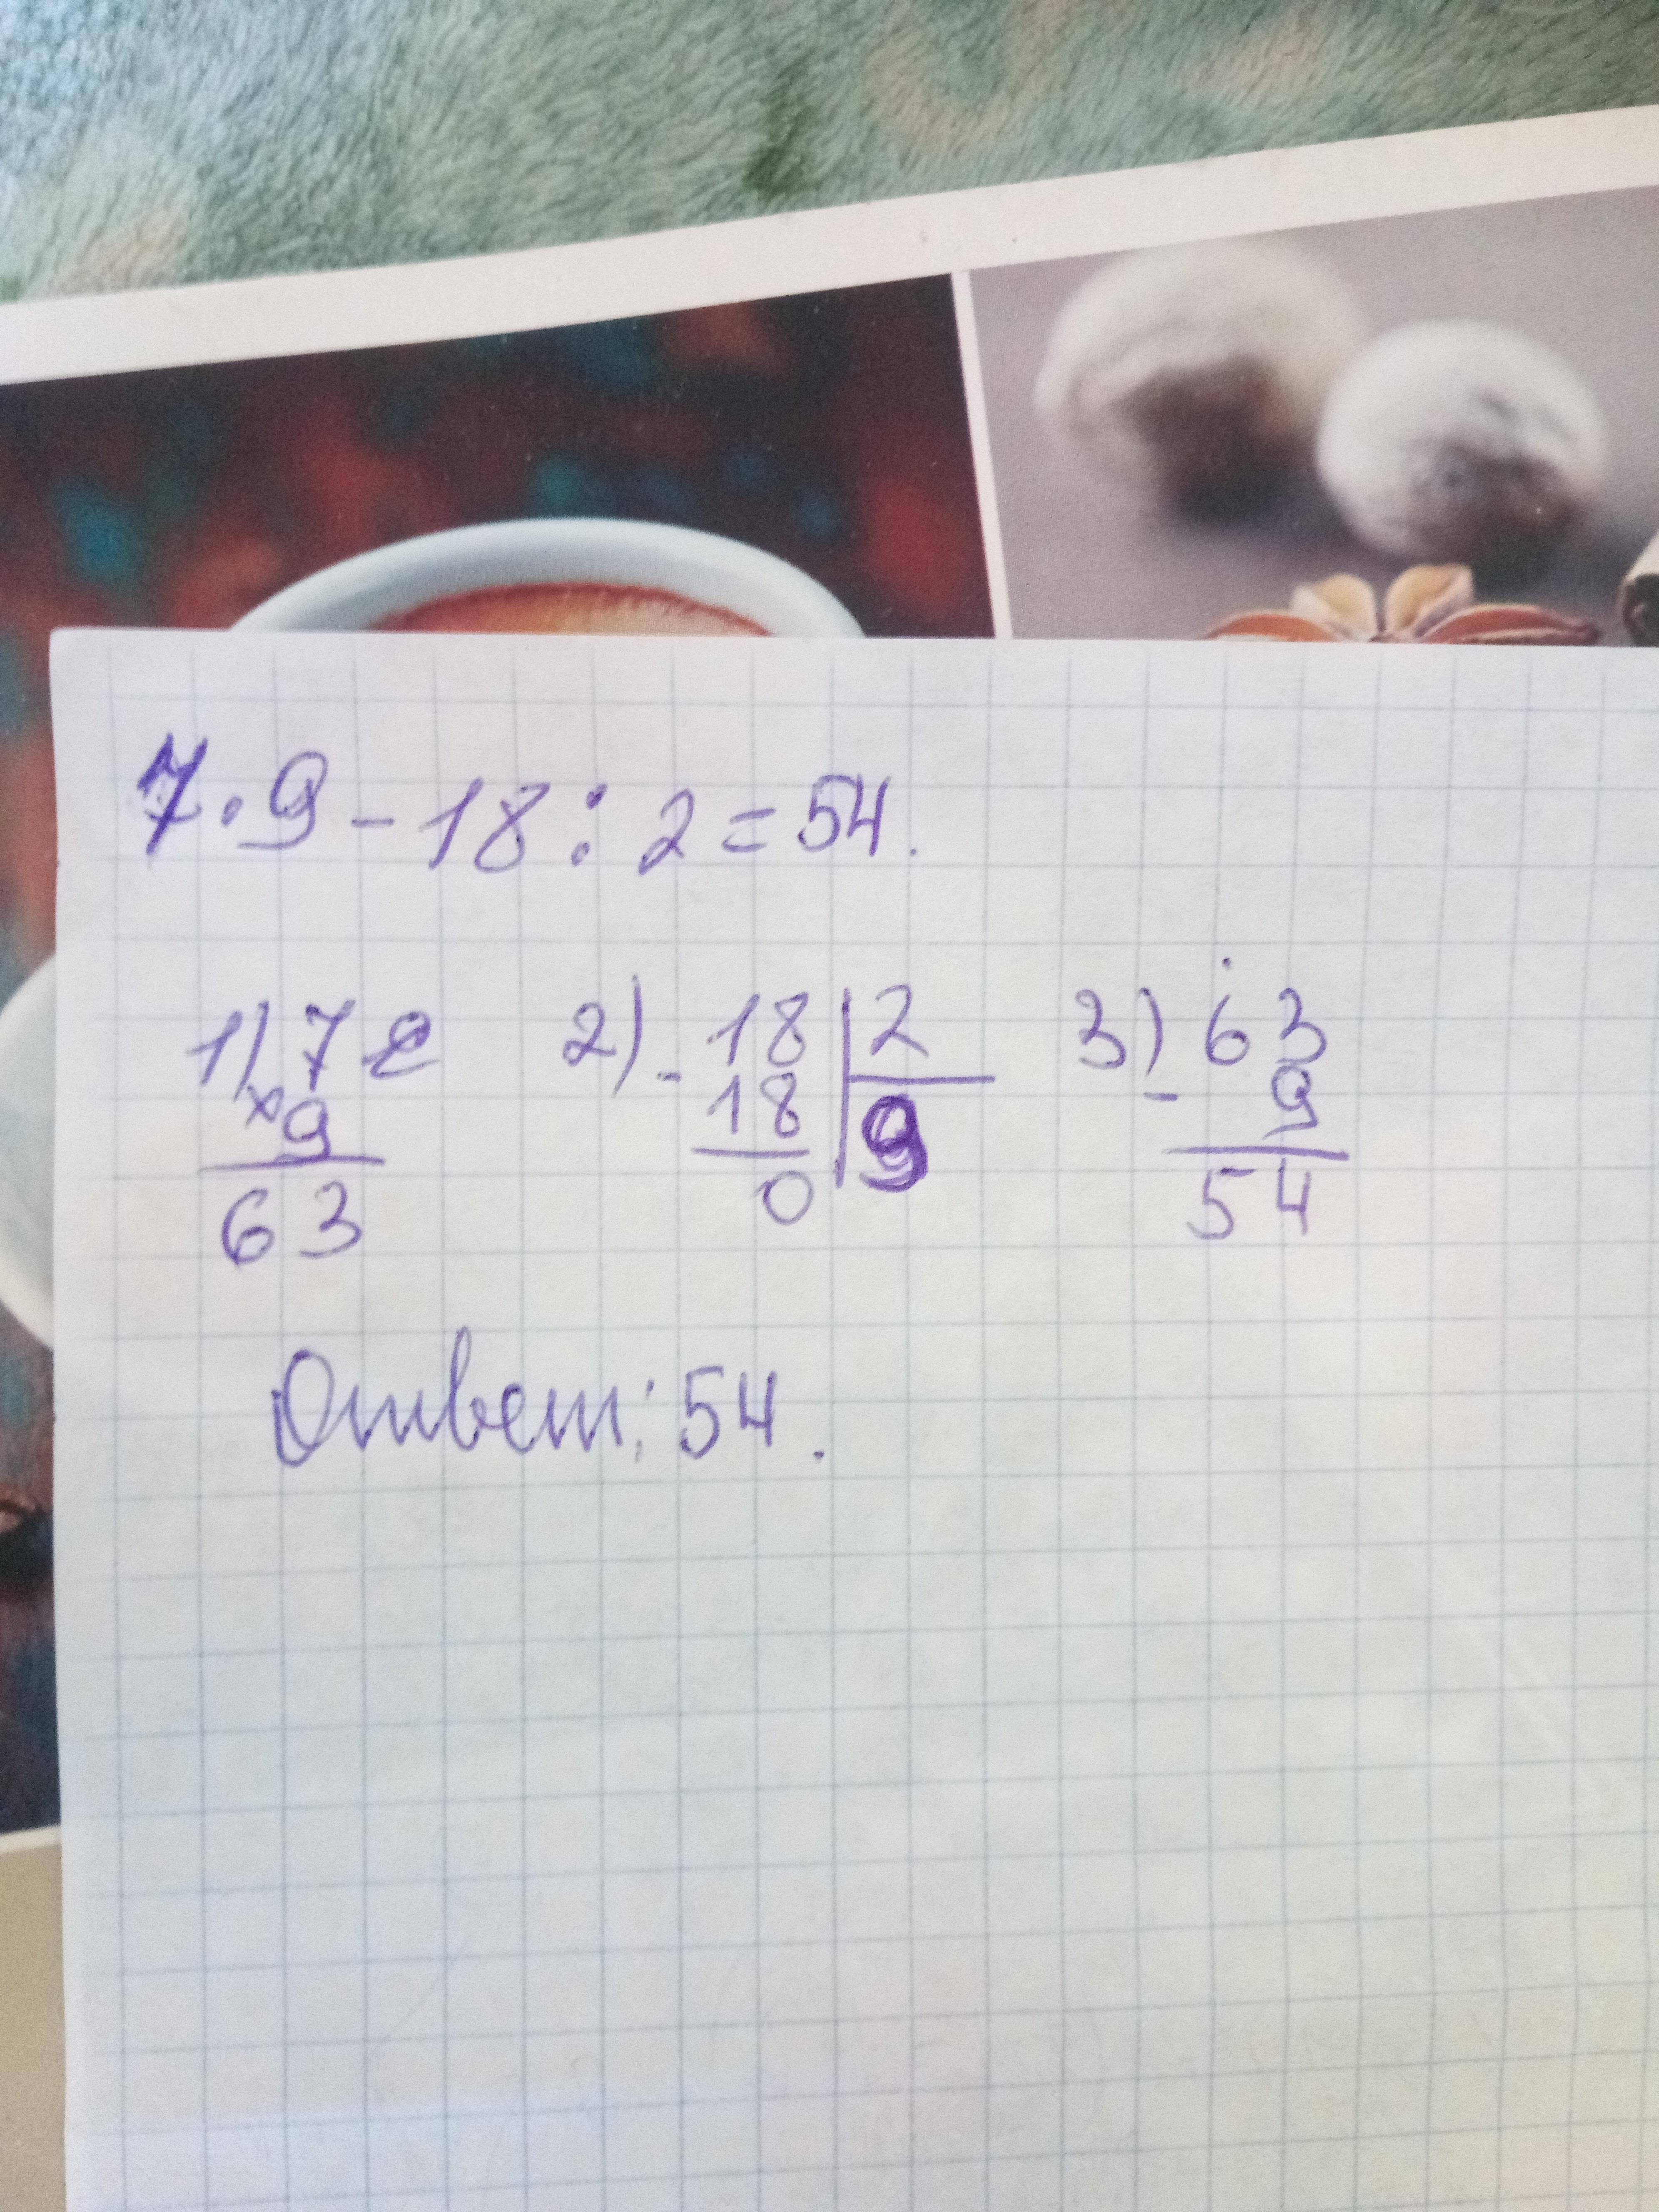 7 · 9 - 18 : 2 = 54.
1) 7 2) - 18 | 2 3) 63
× 9 18 | 9 - 9
63 0 54
Ответ: 54.